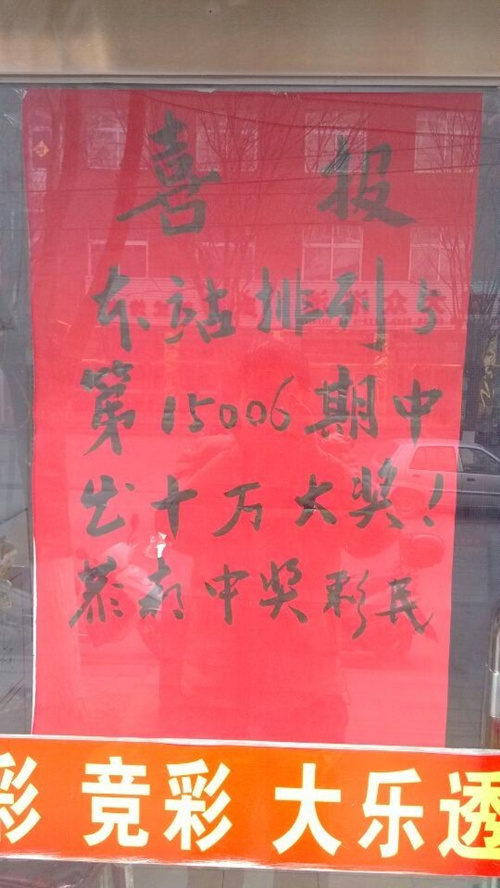 喜报
本站排列5
第15006期中
出十万大奖!
恭喜中奖彩民
彩 竞彩 大乐透